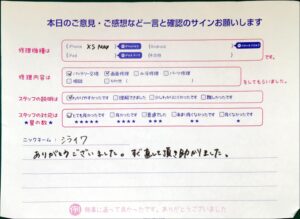 本日のご意見・ご感想など一言と確認のサインお願いします
修理機種は
iPhone XS Max
Android
iPad
その他
修理内容は
バッテリー交換 画面修理 水没修理 パーツ修理
相談 その他
をしてもらいました。
スタッフの説明は
わかりやすかったです 理解できました 少しわかりにくかったです 難しかったです
スタッフの対応は
★星の数★
とても良かったです 良かったです 普通でした あまり良くなかったです 良くなかったです
★★★★★ ★★★★ ★★★ ★★ ★
ニックネーム：シライワ
ありがとうございました。すぐ直して頂き助かりました。
修理に造って良かったです。ありがとうございました